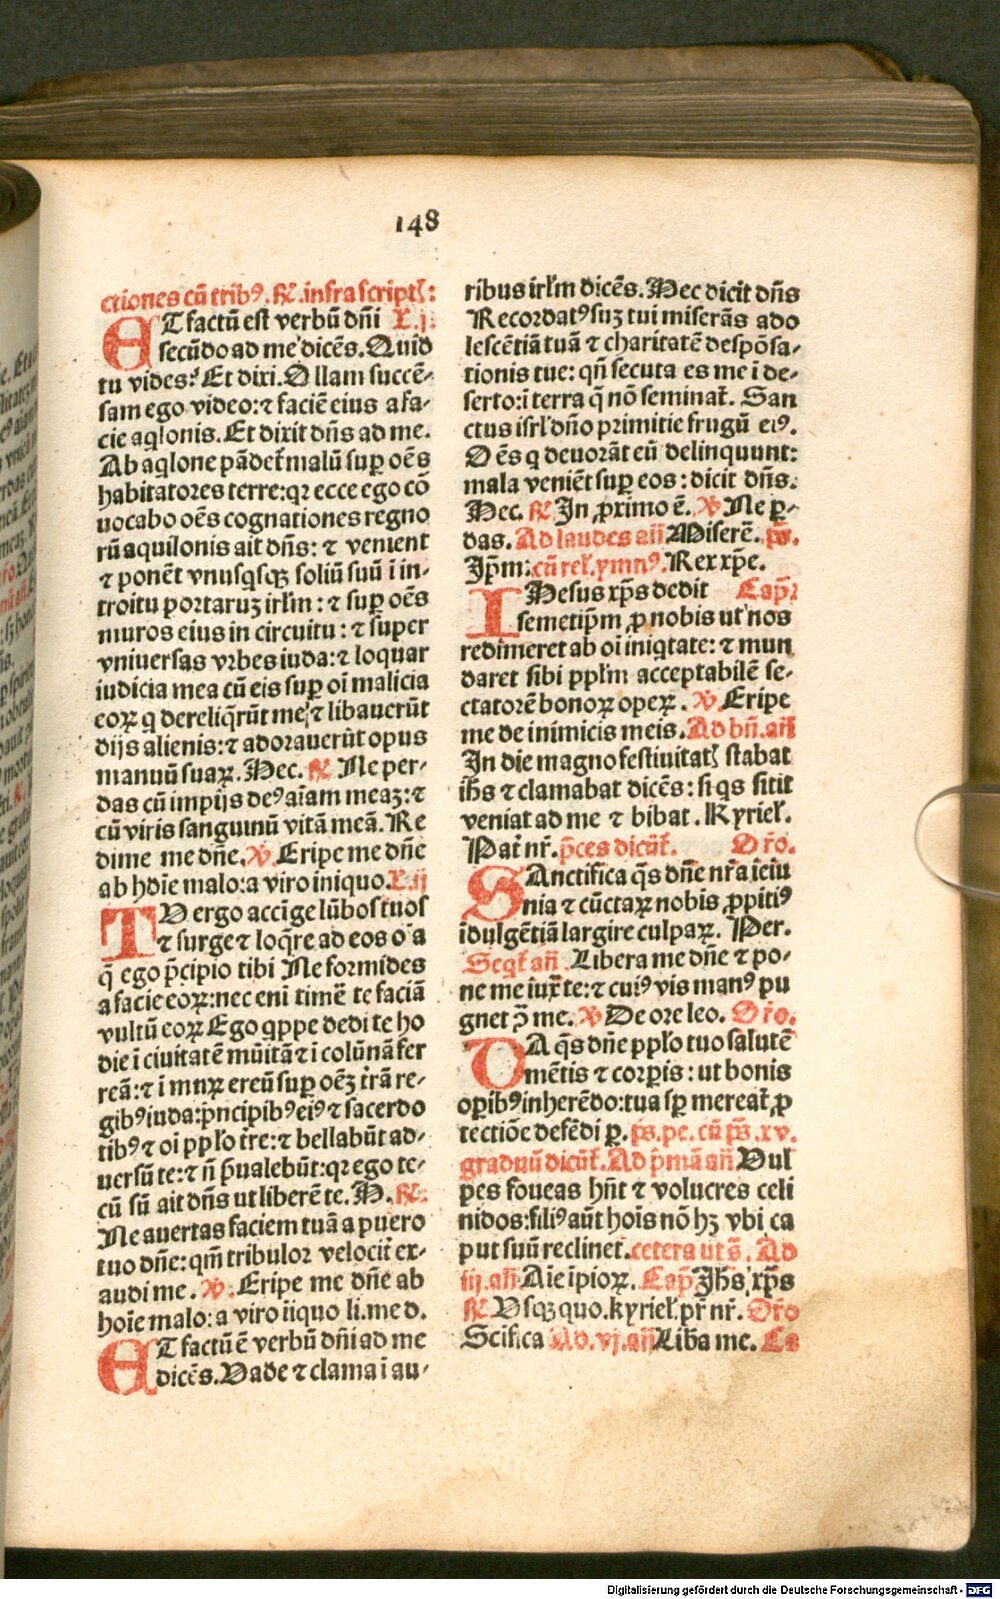 148
ctiones cū trib⁹. ℟. infra script̄:
ET factū est verbū dn̄i L.j.
secūdo ad me dicēs. Quid
tu vides? Et dixi. Ollam succē-
sam ego video: ⁊ faciē eius a fa-
cie aq̇lonis. Et dixit dn̄s ad me.
Ab aq̇lone pādet̄ malū suꝑ oēs
habitatores terre: qꝛ ecce ego cō
uocabo oēs cognationes regno
rū aquilonis ait dn̄s: ⁊ venient
⁊ ponēt vnusq̇sqꝫ soliū suū i in-
troitu portaruꝫ irl̄m: ⁊ suꝑ oēs
muros eius in circuitu: ⁊ super
vniuersas vrbes iuda: ⁊ loquar
iudicia mea cū eis suꝑ oī malicia
eoꝝ q̇ dereliq̄rūt me: ⁊ libauerūt
dijs alienis: ⁊ adorauerūt opus
manuū suaꝝ. Hec. ℟ Ne per-
das cū impijs de⁹ aīam meaꝫ: ⁊
cū viris sanguinū vitā meā. Re
dime me dn̄e. ℣. Eripe me dn̄e
ab hoīe malo: a viro iniquo. L.ij
TU ergo accīge lūbos tuos
⁊ surge ⁊ loq̄re ad eos oīa
q̄ ego p̄cipio tibi Ne formides
a facie eoꝝ: nec eni timē te faciā
vultū eoꝝ Ego q̇ppe dedi te ho
die i ciuitatē mūitā ⁊ i colūnā fer
reā: ⁊ i muꝝ ereū suꝑ oēꝫ tr̄ā re-
gib⁹ iuda: pͥncipib⁹ ei⁹ ⁊ sacerdo
tib⁹ ⁊ oi pplo tr̄e: ⁊ bellabūt ad-
uersū te: ⁊ n̄ p̄ualebūt: qꝛ ego te-
cū sū ait dn̄s ut liberē te. H. ℟.
Ne auertas faciem tuā a puero
tuo dn̄e: qm̄ tribulor velocit̄ ex-
audi me. ℣. Eripe me dn̄e ab
hoīe malo: a viro iiquo li. me d.
ET factū ē verbū dn̄i ad me
dicēs. Vade ⁊ clama i au-
ribus irl̄m dicēs. Hec dicit dn̄s
Recordat⁹ suꝫ tui miserās ado
lescētiā tuā ⁊ charitatē despōsa-
tionis tue: qn̄ secuta es me i de-
serto: i terra q̄ nō seminat̄. San
ctus isrl̄ dn̄o primitie frugū ei⁹.
Oēs q̇ deuorāt eū delinquunt:
mala veniēt suꝑ eos: dicit dn̄s.
Hec. ℟ In ꝓximo ē. ℣ Ne ꝑ-
das. Ad laudes an̄ Miserē. ps̄.
Ip̄m: cū rel̄. ymn⁹. Rex xp̄e.
IHesus xp̄s dedit Capl̄
semetip̄m ꝓ nobis ut nos
redimeret ab oi iniq̇tate: ⁊ mun
daret sibi ppl̄m acceptabilē se-
ctatorē bonoꝝ opeꝝ. ℣. Eripe
me de inimicis meis. Ad bn̄. an̄
In die magno festiuitat̄ stabat
ih̄s ⁊ clamabat dicēs: si q̇s sitit
veniat ad me ⁊ bibat. Kyriel̄.
Pat̄ nr̄. p̄ces dicūt̄. Or̄o.
SAnctifica q̄s dn̄e nr̄a ieiu
nia ⁊ cūctaꝝ nobis ꝓpiti⁹
īdulgētiā largire culpaꝝ. Per.
Seqt̄ an̄. Libera me dn̄e ⁊ po-
ne me iuxͭ te: ⁊ cui⁹ vis man⁹ pu
gnet ꝯ̄ me. ℣ De ore leo. Or̄o.
DA q̄s dn̄e pplo tuo salutē
mētis ⁊ corꝑis: ut bonis
oꝑib⁹ inherēdo: tua sꝑ mereat̄ ꝓ
tectiōe defēdi ꝑ. ps̄. pe. cū ps̄. xv.
graduū dicūt̄. Ad pͥmā an̄ Vul
pes foueas hn̄t ⁊ volucres celi
nidos: fili⁹ aūt hoīs nō hꝫ vbi ca
put suū reclinet. cetera ut s̄. Ad
iij. an̄ Aīe ipioꝝ. Capl̄ Ih̄s xp̄s
℟ Vsqꝫ quo. kyriel̄. pr̄ nr̄. Or̄o
Sc̄ifica Ad. vj. an̄ Lib̄a me. Ca
Digitalisierung gefördert durch die Deutsche Forschungsgemeinschaft - DFG